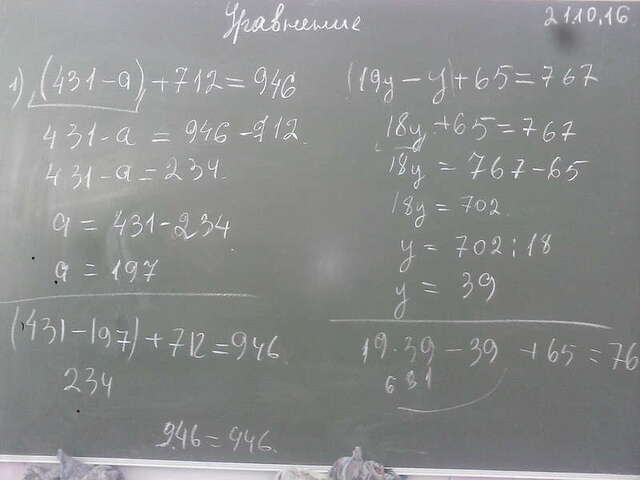 Уравнение
21.10.16
1) (431-a) + 712 = 946
431-a = 946 - 712.
431-a = 234.
a = 431-234
a = 197
(431-197) + 712 = 946.
234
946 = 946.
(19y - y) + 65 = 767
18y + 65 = 767
18y = 767-65
18y = 702.
y = 702 : 18
y = 39
19 · 39 - 39 + 65 = 76